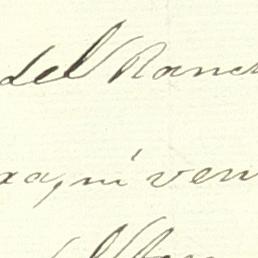 del Ranch
xa, ni ven